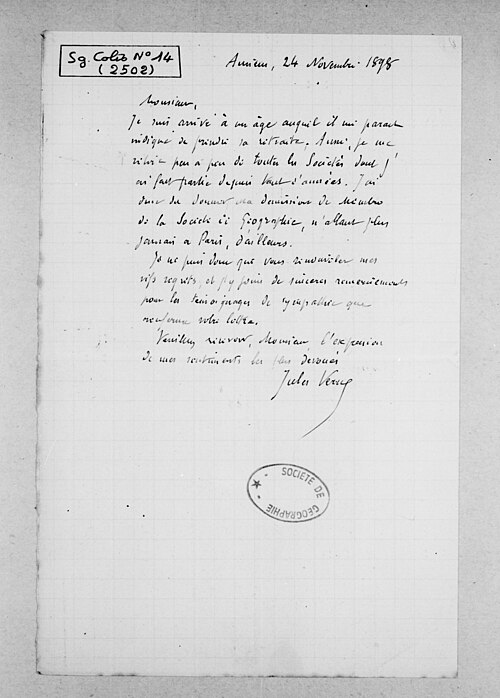 Sg. Colis N° 14
(2502)
Amiens, 24 Novembre 1898
Monsieur,
Je suis arrivé à un âge auquel il me parait
indiqué de prendre sa retraite. Aussi, je me
retire peu a peu de toutes les Sociétés dont j'
ai fait partie depuis tant d'années. J'ai
donc du donner ma demission de Membre
de la Société de Géographie, n'allant plus
jamais a Paris, d'ailleurs.
Je ne puis donc que vous renouveler mes
vifs regrets, et j'y joins de sinceres remerciements
pour les temoignages de sympathie que
renferme votre lettre.
Veuillez recevoir, Monsieur l'expression
de mes sentiments les plus devoués
Jules Verne
SOCIETE DE
GEOGRAPHIE